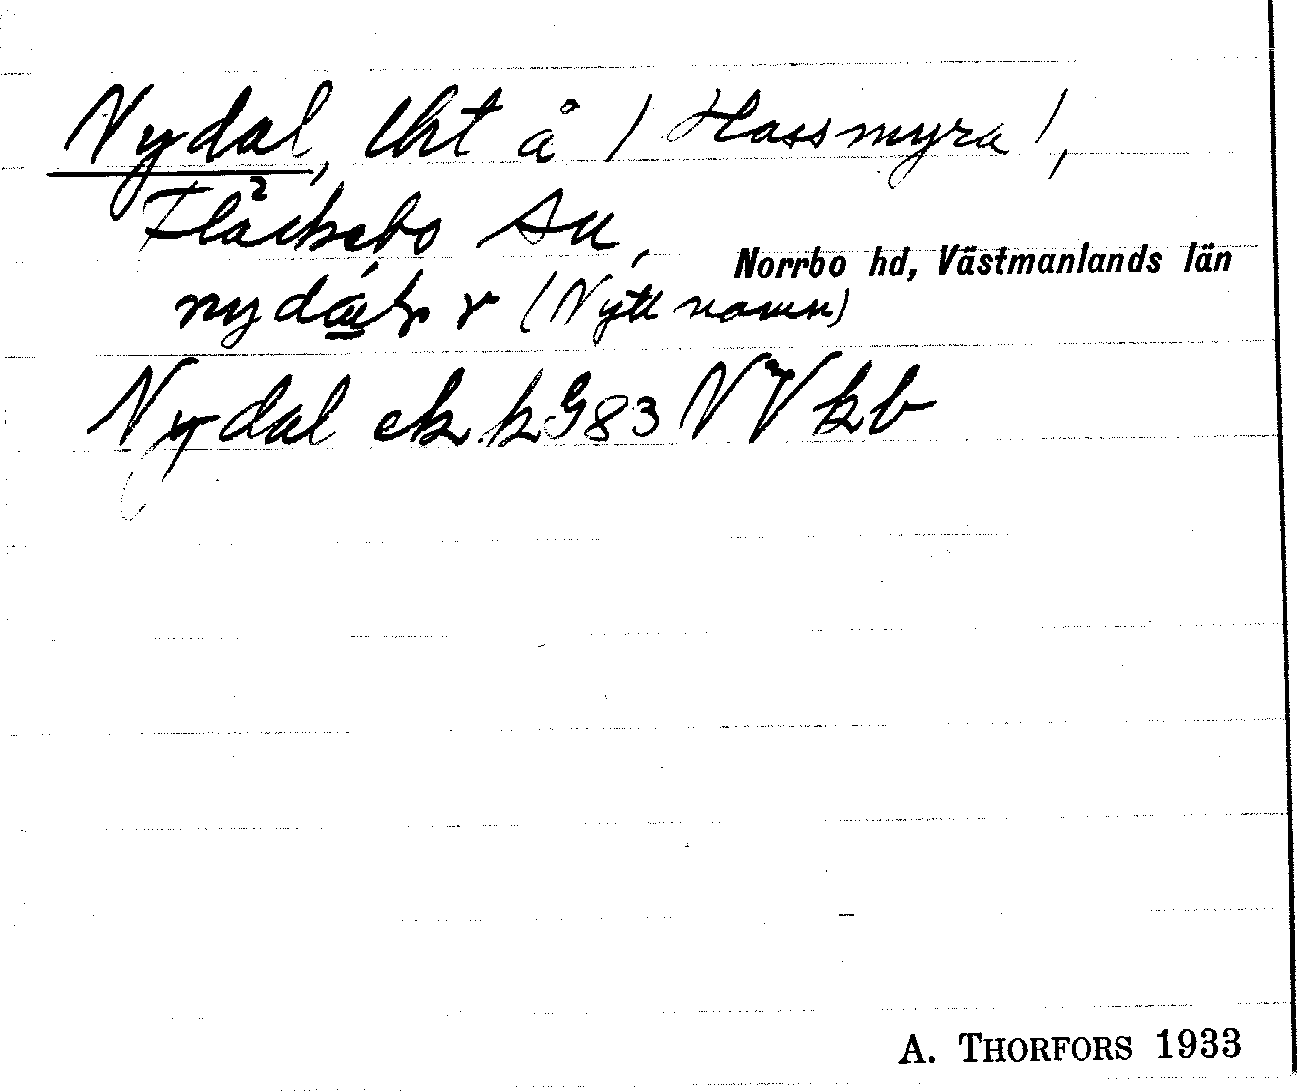 Nydal, lht å / Hassmyra /,
Fläckebo sn,
Norrbo hd, Västmanlands län
(Nytt namn)
Nydal ek kG83 NV kb
A. THORFORS 1933